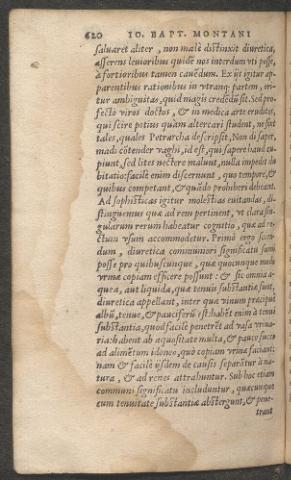 620 IO. BAPT. MONTANI
saluaret aliter, non malè distinxit diuretica,
asserens leuioribus quidē nos interdum vti posse,
à fortioribus tamen cauēdum. Ex ijs igitur ap-
parentibus rationibus in vtranq; partem, ori-
tur ambiguitas, quid magis credēdū sit. Sed pro-
fectò viros doctos, & in medica arte eruditos,
qui scire potius quàm altercari student, ne sint
tales, quales Petrarcha descripsit, Non di saper,
ma di cōtender vaghi, id est, qui sapere haud cu-
piunt, sed lites nectere malunt, nulla impedit du
bitatio: facilè enim discernunt, quo tempore, &
quibus competant, & quādo prohiberi debeant.
Ad sophisticas igitur molestias euitandas, di-
stinguemus quæ ad rem pertinent, vt clara sin-
gularum rerum habeatur cognitio, quæ ad re-
ctum vsum accommodetur. Primò ergo scien-
dum, diuretica communiori significatu sumi
posse pro quibuscunque, quæ quocunque modo
vrinæ copiam efficere possunt: & sic omnia a-
quea, aut liquida, quæ tenuis substantiæ sunt,
diuretica appellant, inter quæ vinum præcipuè
albū, tenue, & pauciferū est: habēt enim à tenui
substantia, quod facilè penetrēt ad vasa vrina-
ria: habent ab aquositate multa, & pauco succo
ad alimētum idoneo, quòd copiam vrinæ faciant:
nam & facilè ijsdem de causis separātur à na-
tura, & ad renes attrahuntur. Sub hoc etiam
communi significatu includuntur, quæcunque
cum tenuitate substantiæ abstergunt, & pene-
trant